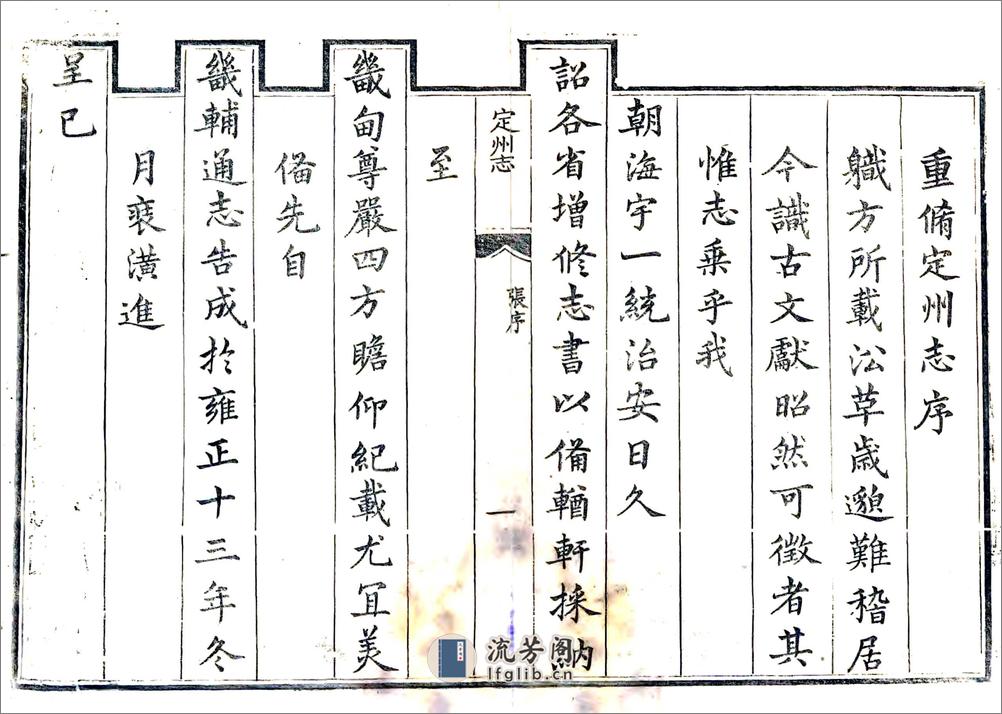 重脩定州志序
職方所載沿草歲邈難稽居
今識古文獻昭然可徵者其
惟志乘乎我
朝海宇一統治安日久
詔各省增修志書以備輶軒採納
定州志
張序
一
至
畿甸尊嚴四方瞻仰紀載尤宜美
偹先自
畿輔通志告成於雍正十三年冬
月裝潢進
呈已
流芳阁
lfglib.cn